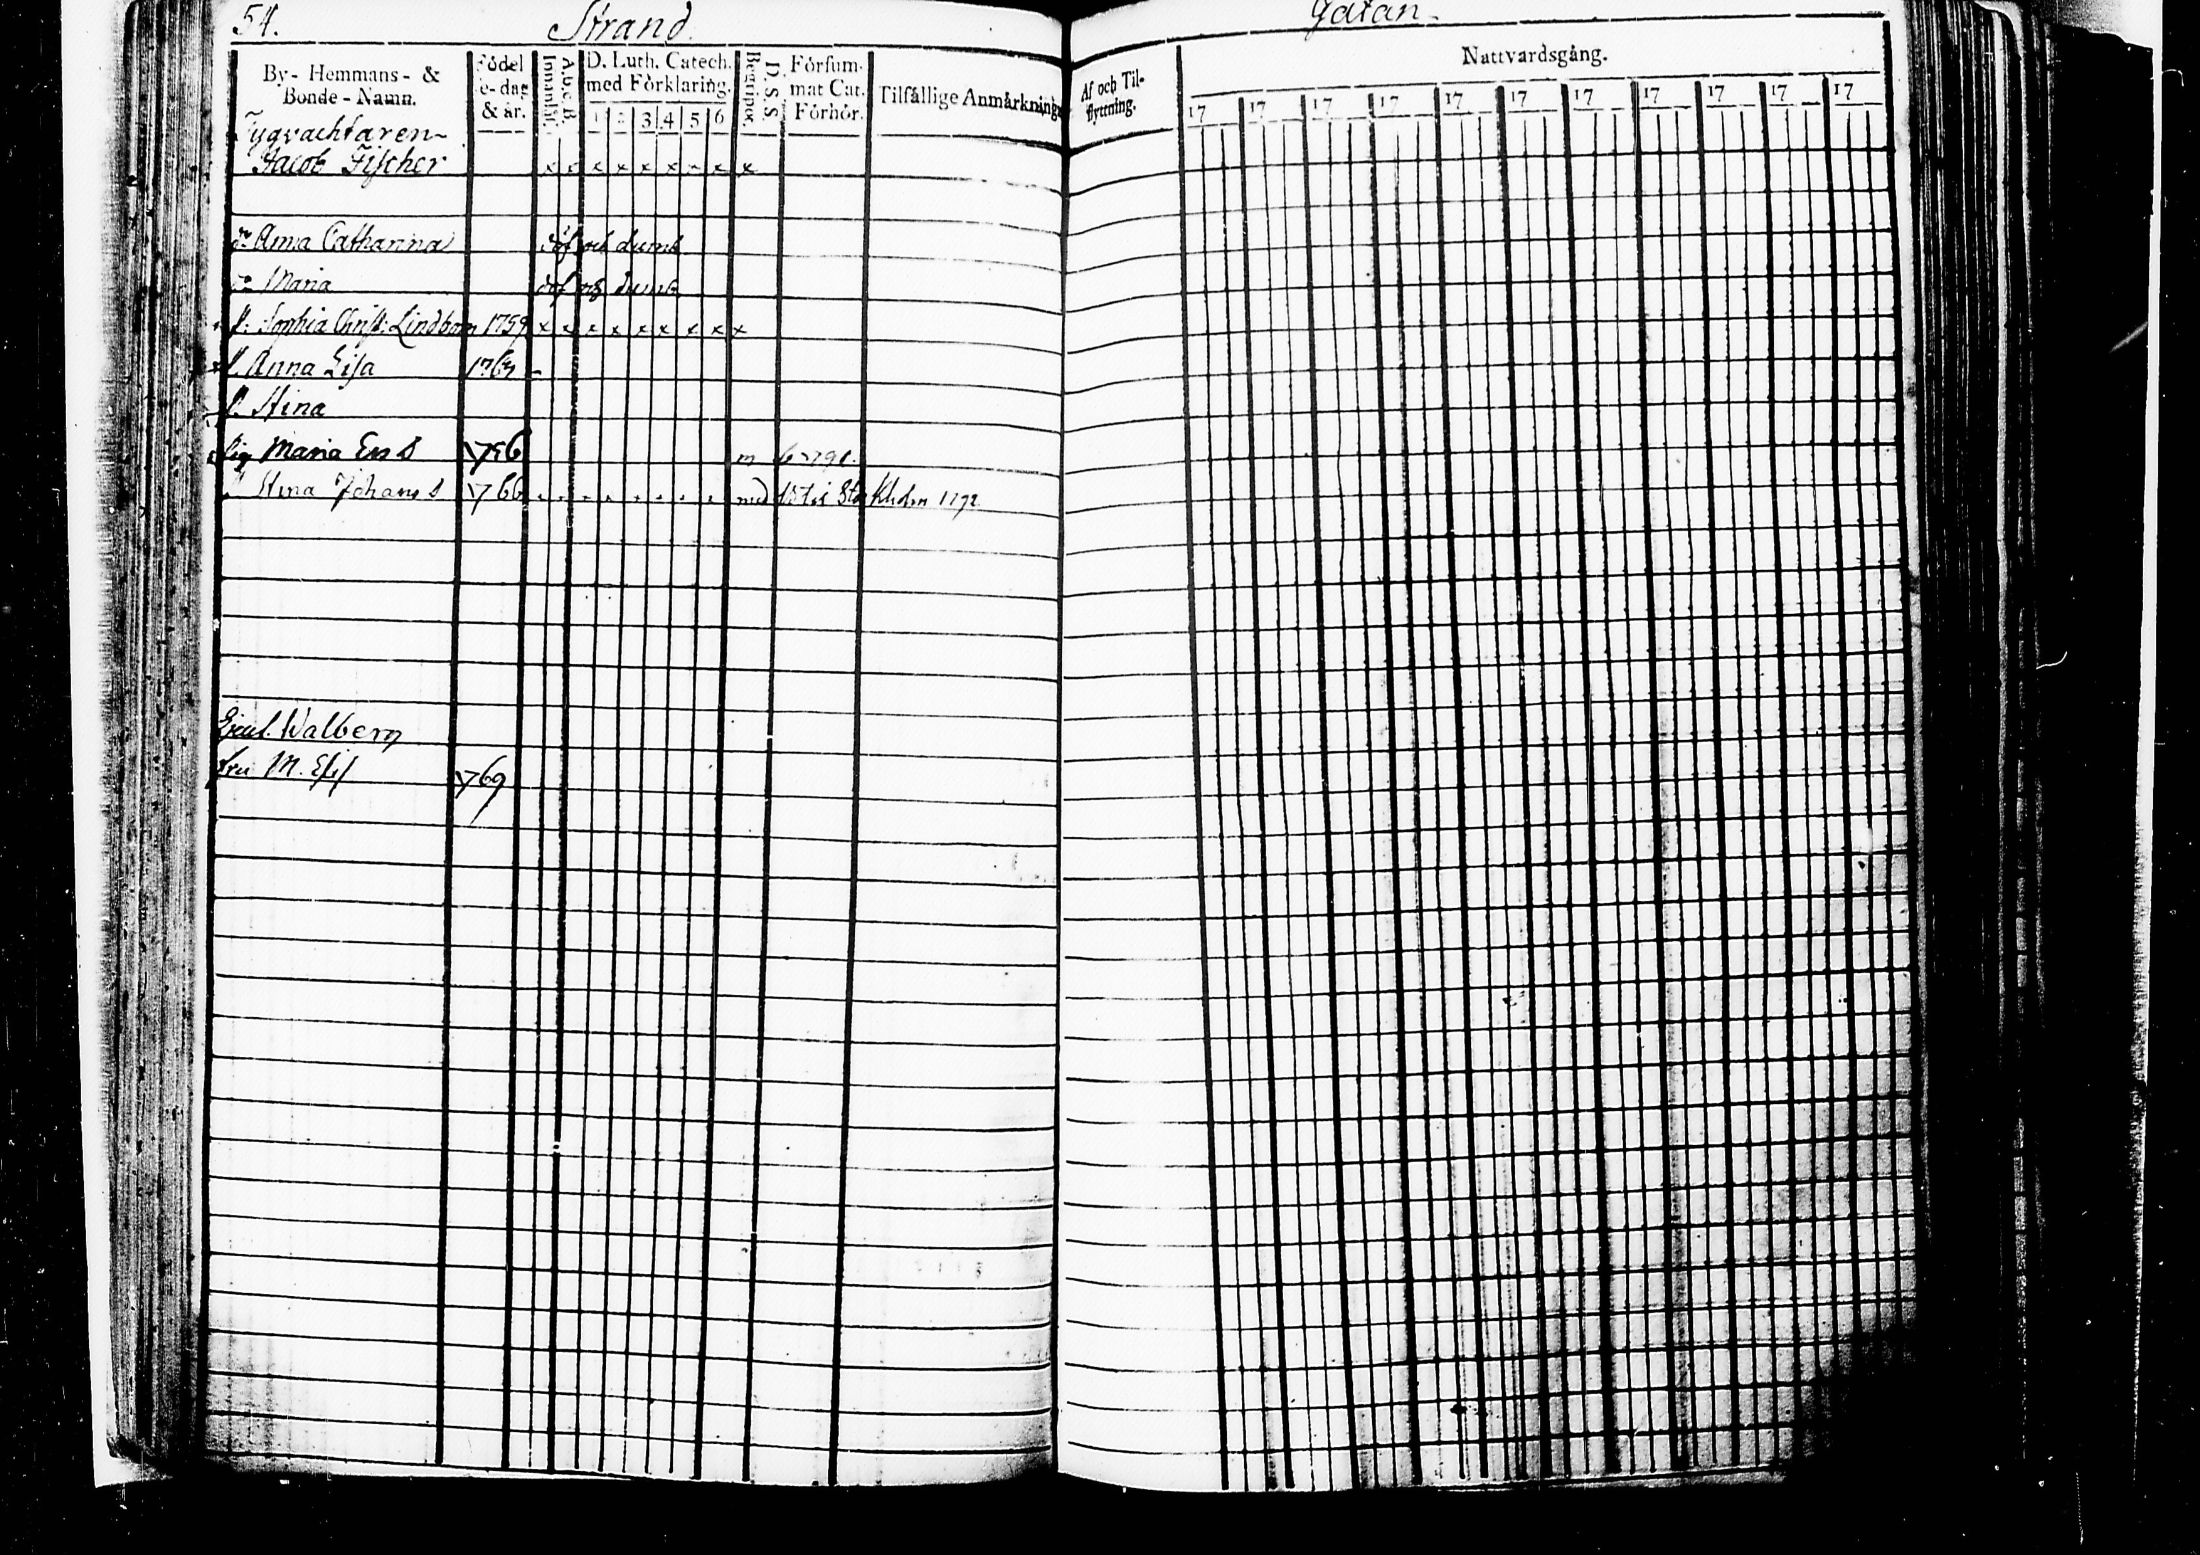 54. Strand
Gatan.
By- Hemmans- & Bonde-Namn.
Födelse-dag & år.
A.b.c.B. Innanläs.
D. Luth. Catech. med Förklaring.
1 2 3 4 5 6
Begripes.
D. S. S.
Försummat Cat. Förhör.
Tilfällige Anmärkningar
Af och Tilflyttning.
Nattvardsgång.
17 17 17 17 17 17 17 17 17 17 17
Tygvachtaren
Jacob Fischer x x x x x x - x x
dr Anna Catharina döf och dumb
dr Maria döf och dumb
P. Sophia Christ: Lindbom 1759 x x x x x x x x x
P. Anna Lisa
P. Stina
Pig Maria Ers d 1756
Stina Johans d 1766 med till Stockholm 1792
Walberg
fru M. 1769